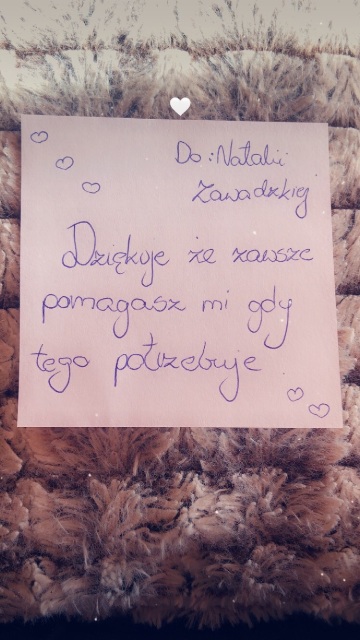 Do: Natalii
Zawadzkiej
Dziękuje że zawsze
pomagasz mi gdy
tego potrzebuje